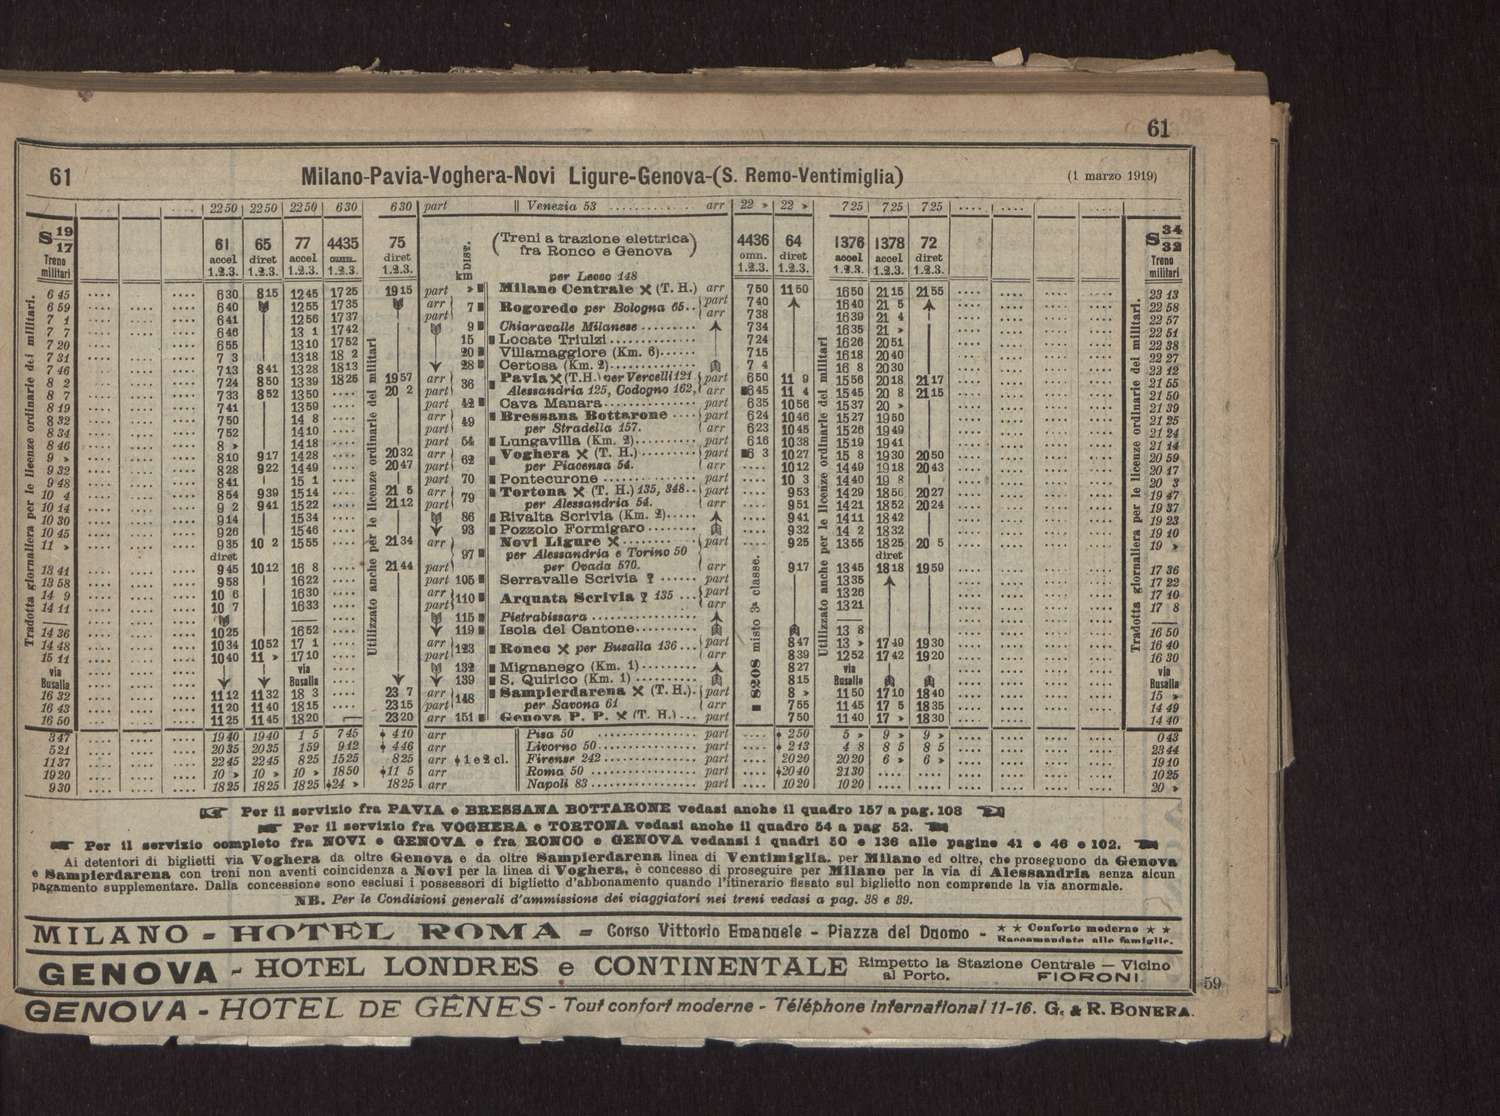 61
61 Milano-Pavia-Voghera-Novi Ligure-Genova-(S. Remo-Ventimiglia) (1 marzo 1919)
2250 2250 2250 630 630 part Venezia 53 arr 22 » 22 » 725 725 725
S 19/17 61 65 77 4435 75 DIST. (Treni a trazione elettrica fra Ronco e Genova) 4436 64 1376 1378 72 S 34/32
Treno militari accel diret accel omn. diret omn. diret accel accel diret Treno militari
1.2.3. 1.2.3. 1.2.3. 1.2.3. 1.2.3. km per Lecco 148 1.2.3. 1.2.3. 1.2.3. 1.2.3. 1.2.3.
Tradotta giornaliera per le licenze ordinarie dei militari.
Utilizzato anche per le licenze ordinarie dei militari
Utilizzato anche per le licenze ordinarie dei militari
Tradotta giornaliera per le licenze ordinarie dei militari.
6 45 630 815 1245 1725 1915 part » Milano Centrale (T. H.) arr 750 1150 1650 2115 2155 23 13
6 59 640 1255 1735 arr 7 Rogoredo per Bologna 65 part 740 1640 21 5 22 58
7 1 641 1256 1737 part arr 738 1639 21 4 22 57
7 7 646 13 1 1742 9 Chiaravalle Milanese 734 1635 21 » 22 51
7 20 655 1310 1752 15 Locate Triulzi 724 1626 2051 22 38
7 31 7 3 1318 18 2 20 Villamaggiore (Km. 6) 715 1618 2040 22 27
7 46 713 841 1328 1813 28 Certosa (Km. 2) 7 4 16 8 2030 22 12
8 2 724 850 1339 1825 1957 arr 36 Pavia (T.H.) per Vercelli 121 part 650 11 9 1556 2018 2117 21 55
8 7 733 852 1350 20 2 part Alessandria 125, Codogno 162, arr 645 11 4 1545 20 8 2115 21 50
8 19 741 1359 part 42 Cava Manara part 635 1056 1537 20 » 21 39
8 32 750 14 8 arr 49 Bressana Bottarone part 624 1046 1527 1950 21 25
8 34 752 1410 part per Stradella 157. arr 623 1045 1526 1949 21 24
8 46 8 » 1418 part 54 Lungavilla (Km. 2) part 616 1038 1519 1941 21 14
9 » 810 917 1428 2032 arr 62 Voghera (T. H.) part 6 3 1027 15 8 1930 2050 20 59
9 32 828 922 1449 2047 part per Piacenza 54. arr 1012 1449 1918 2043 20 17
9 48 841 15 1 part 70 Pontecurone part 10 3 1440 19 8 20 3
10 4 854 939 1514 21 5 arr 79 Tortona (T. H.) 135, 348 part 953 1429 1856 2027 19 47
10 14 9 2 941 1522 2112 part per Alessandria 54. arr 951 1421 1852 2024 19 37
10 30 914 1534 86 Rivalta Scrivia (Km. 2) 941 1411 1842 19 23
10 45 926 1546 93 Pozzolo Formigaro 932 14 2 1832 19 10
11 » 935 10 2 1555 2134 arr 97 Novi Ligure part 925 1355 1825 20 5 19 »
diret per Alessandria e Torino 50 diret
13 41 945 1012 16 8 2144 part per Ovada 570. arr 917 1345 1818 1959 17 36
13 58 958 1622 part 105 Serravalle Scrivia part 1335 17 22
14 9 10 6 1630 arr 110 Arquata Scrivia 135 part 1326 17 10
14 11 10 7 1633 part arr 1321 17 8
115 Pietrabissara
14 36 1025 1652 119 Isola del Cantone 13 8 16 50
14 48 1034 1052 17 1 arr 123 Ronco per Busalla 136 part 847 13 » 1749 1930 16 40
15 11 1040 11 » 1710 part arr 839 1252 1742 1920 16 30
via Busalla via Busalla 132 Mignanego (Km. 1) 827 via Busalla via Busalla
139 S. Quirico (Km. 1) 815
8208 misto 3a classe.
16 32 1112 1132 18 3 23 7 arr 148 Sampierdarena (T. H.) part 8 » 1150 1710 1840 15 »
16 43 1120 1140 1815 2315 part per Savona 61 arr 755 1145 17 5 1835 14 49
16 50 1125 1145 1820 2320 arr 151 Genova P. P. (T. H.) part 750 1140 17 » 1830 14 40
3 47 1940 1940 1 5 745 410 arr Pisa 50 part 250 5 » 9 » 9 » 0 43
5 21 2035 2035 159 912 446 arr Livorno 50 part 213 4 8 8 5 8 5 23 44
11 37 2245 2245 825 1525 825 arr 1 e 2 cl. Firenze 242 part 2020 2020 6 » 6 » 19 10
19 20 10 » 10 » 10 » 1850 11 5 arr Roma 50 part 2040 2130 10 25
9 30 1825 1825 1825 24 » 1825 arr Napoli 83 part 1020 1020 20 »
Per il servizio fra PAVIA e BRESSANA BOTTARONE vedasi anche il quadro 157 a pag. 108
Per il servizio fra VOGHERA e TORTONA vedasi anche il quadro 54 a pag 52.
Per il servizio completo fra NOVI e GENOVA e fra RONCO e GENOVA vedansi i quadri 50 e 136 alle pagine 41 e 46 e 102.
Ai detentori di biglietti via Voghera da oltre Genova e da oltre Sampierdarena linea di Ventimiglia, per Milano ed oltre, che proseguono da Genova
e Sampierdarena con treni non aventi coincidenza a Novi per la linea di Voghera, è concesso di proseguire per Milano per la via di Alessandria senza alcun
pagamento supplementare. Dalla concessione sono esclusi i possessori di biglietto d'abbonamento quando l'itinerario fissato sul biglietto non comprende la via anormale.
NB. Per le Condizioni generali d'ammissione dei viaggiatori nei treni vedasi a pag. 38 e 39.
MILANO - HOTEL ROMA = Corso Vittorio Emanuele - Piazza del Duomo - ★ ★ Conforto moderno ★ ★
Raccomandato alle famiglie.
GENOVA - HOTEL LONDRES e CONTINENTALE Rimpetto la Stazione Centrale — Vicino
al Porto. FIORONI.
59
GENOVA - HOTEL DE GÊNES - Tout confort moderne - Téléphone international 11-16. G. & R. BONERA.